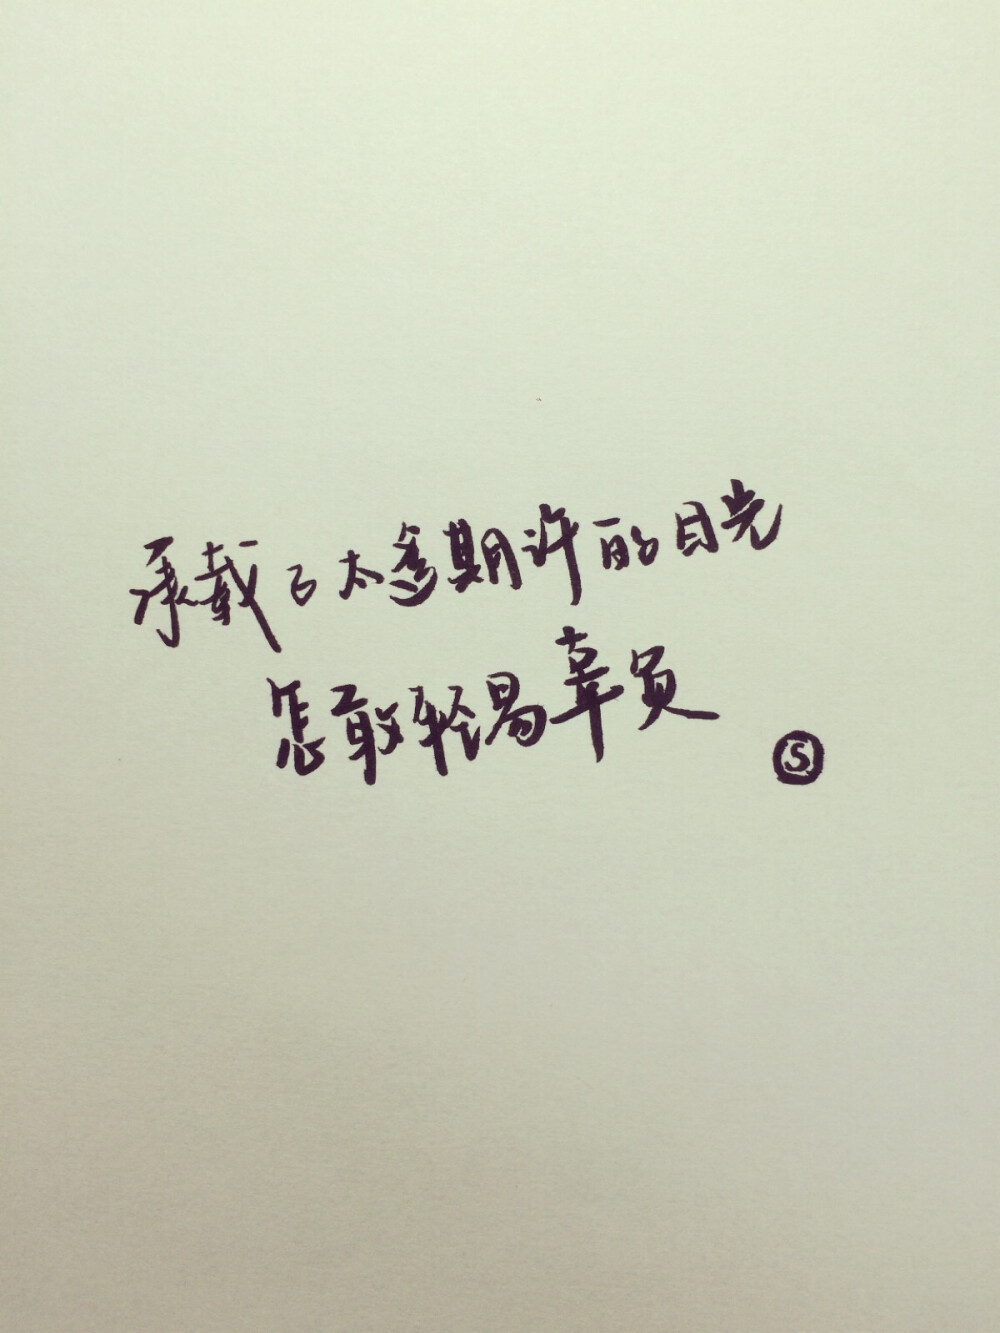 承载了太多期许的目光
怎敢轻易辜负
S